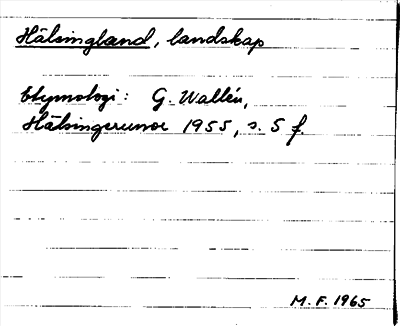 Hälsingland, landskap
Etymologi: G. Wallén,
Hälsingerunor 1955, s. 5 f.
M. F. 1965